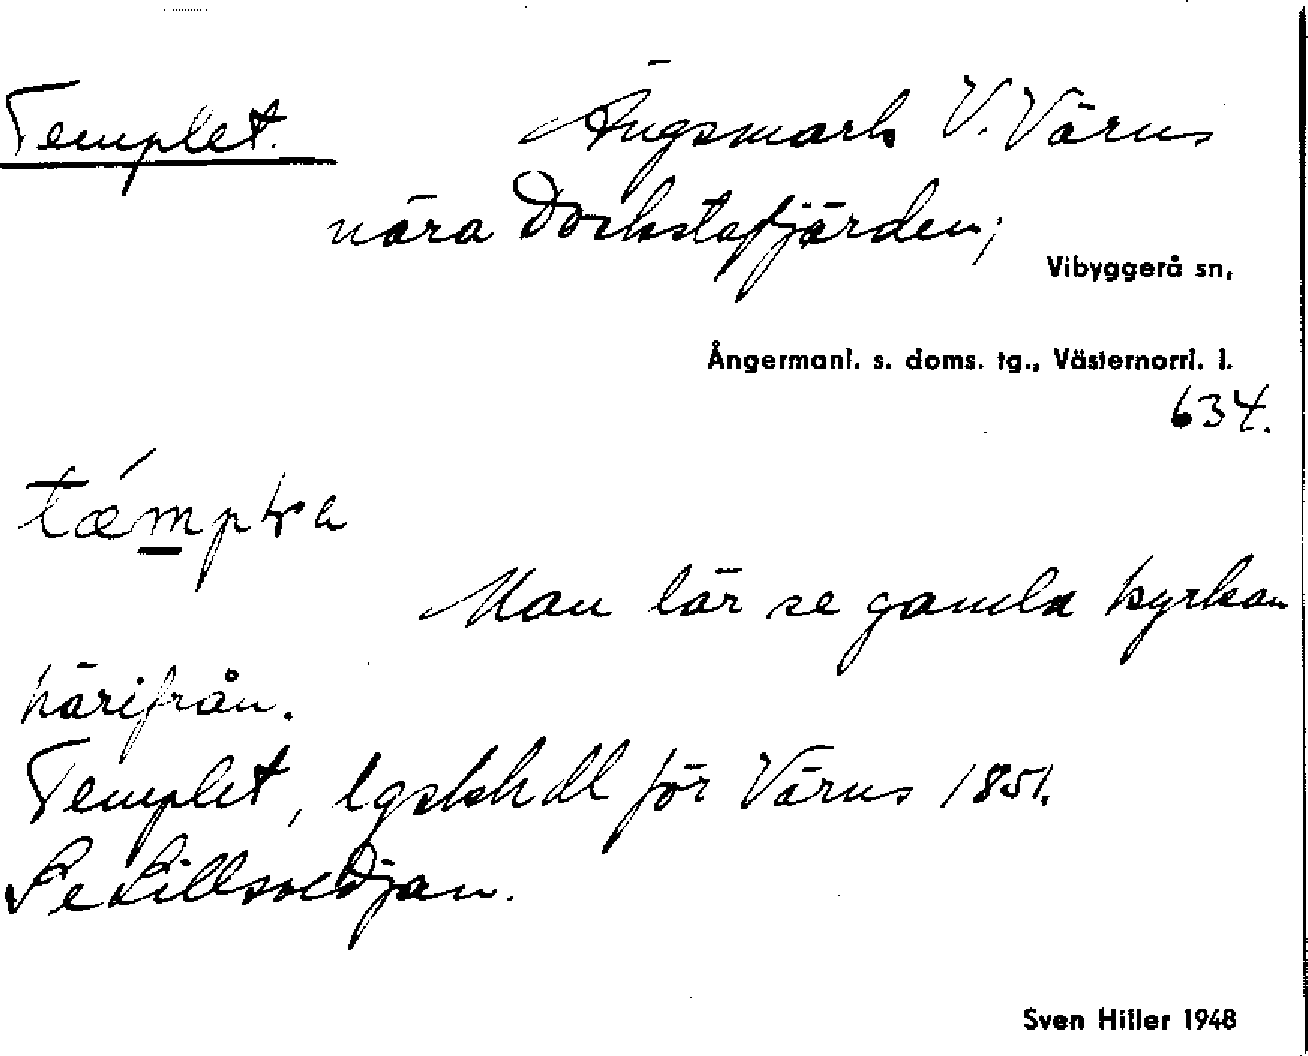 Templet. Ängsmark V. Värns
nära Dockstafjärden;
Vibyggerå sn,
Ångermanl. s. doms. tg., Västernorrl. l.
634.
Man lär se gamla kyrkan
härifrån.
Templet, lgskhdl för Värns 1851.
Se Lillsvedjan.
Sven Hiller 1948